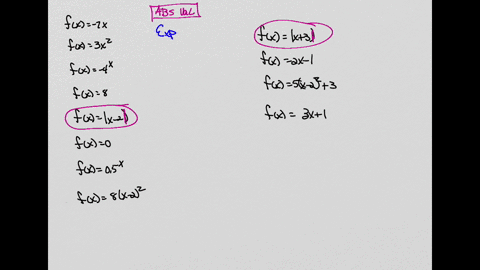 ABS VAL
Exp
f(x)=-7x
f(x)=3x²
f(x)=-4^x
f(x)=8
f(x)=|x-2|
f(x)=0
f(x)=0.5^-x
f(x)=8(x-2)²
f(x)=|x+3|
f(x)=-2x-1
f(x)=5(x-2)²+3
f(x)= 3x+1